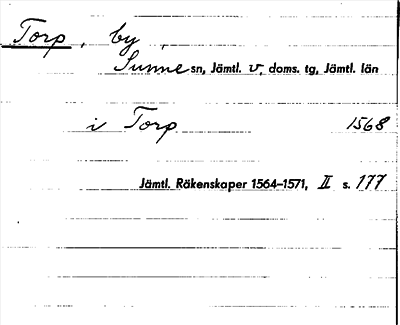 Torp, by,
Sunne sn, Jämtl. v, doms. tg, Jämtl. län
i Torp 1568
Jämtl. Räkenskaper 1564–1571, II s. 177